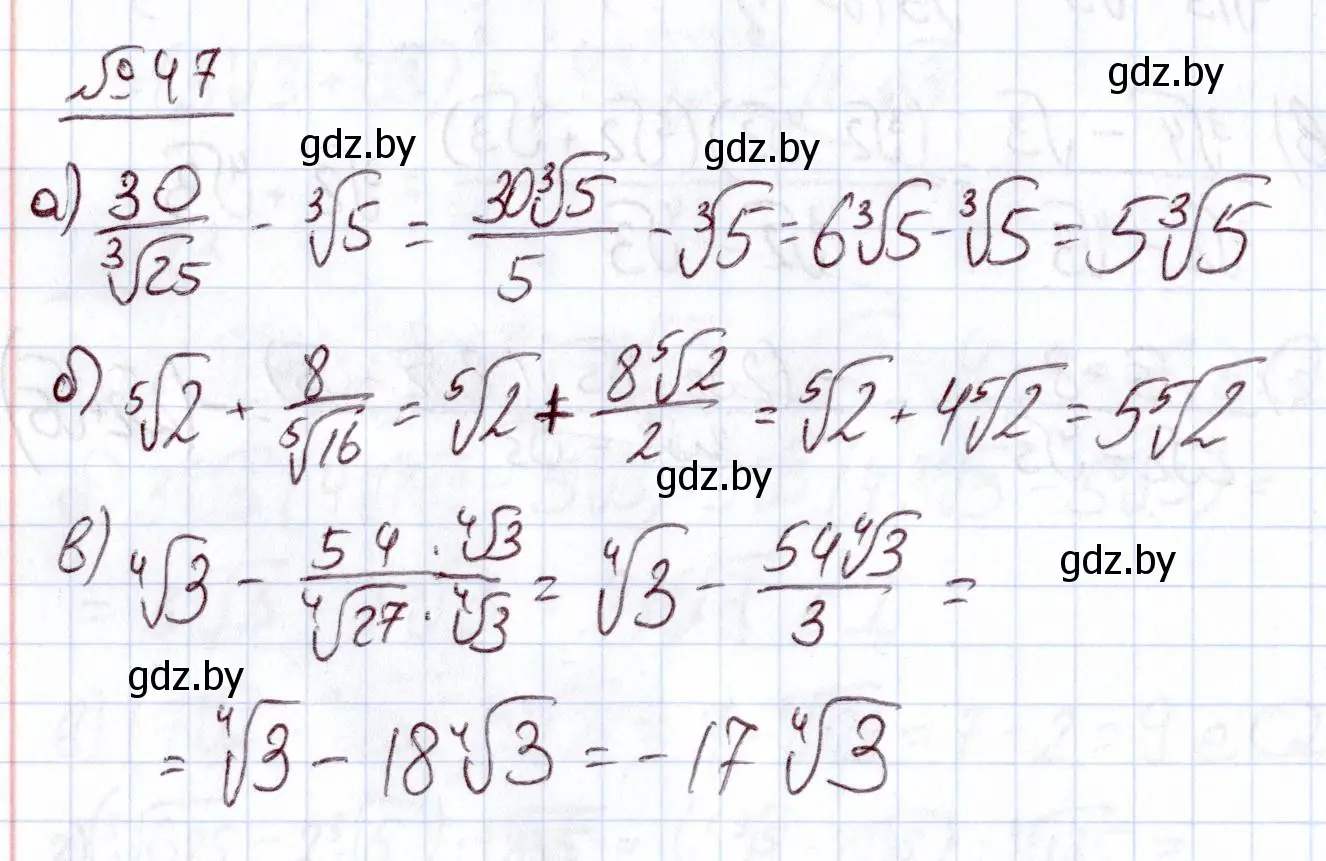 № 47
gdz.by
gdz.by gdz.by
а) 30/∛25 - ∛5 = 30∛5/5 - ∛5 = 6∛5 - ∛5 = 5∛5
б) ⁵√2 + 8/⁵√16 = ⁵√2 + 8⁵√2/2 = ⁵√2 + 4⁵√2 = 5⁵√2
gdz.by
в) ⁴√3 - 54·⁴√3/⁴√27·⁴√3 = ⁴√3 - 54⁴√3/3 =
gdz.by
gdz.by
= ⁴√3 - 18⁴√3 = -17⁴√3